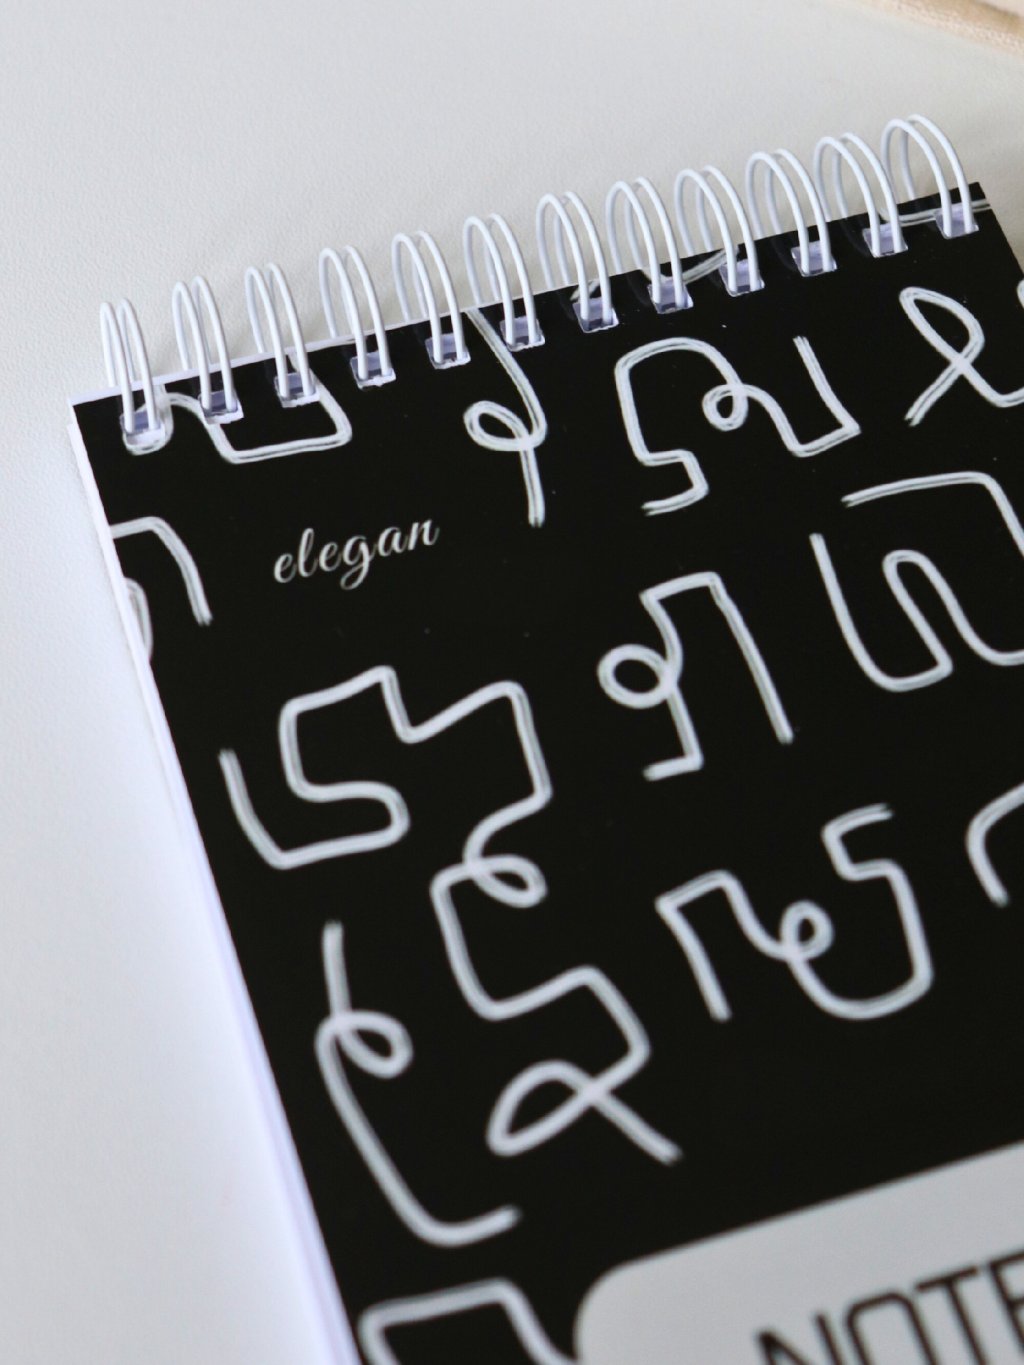 elegan
NOTE